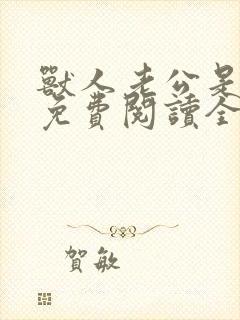 獸人老公是
免費閱讀全
賀敏